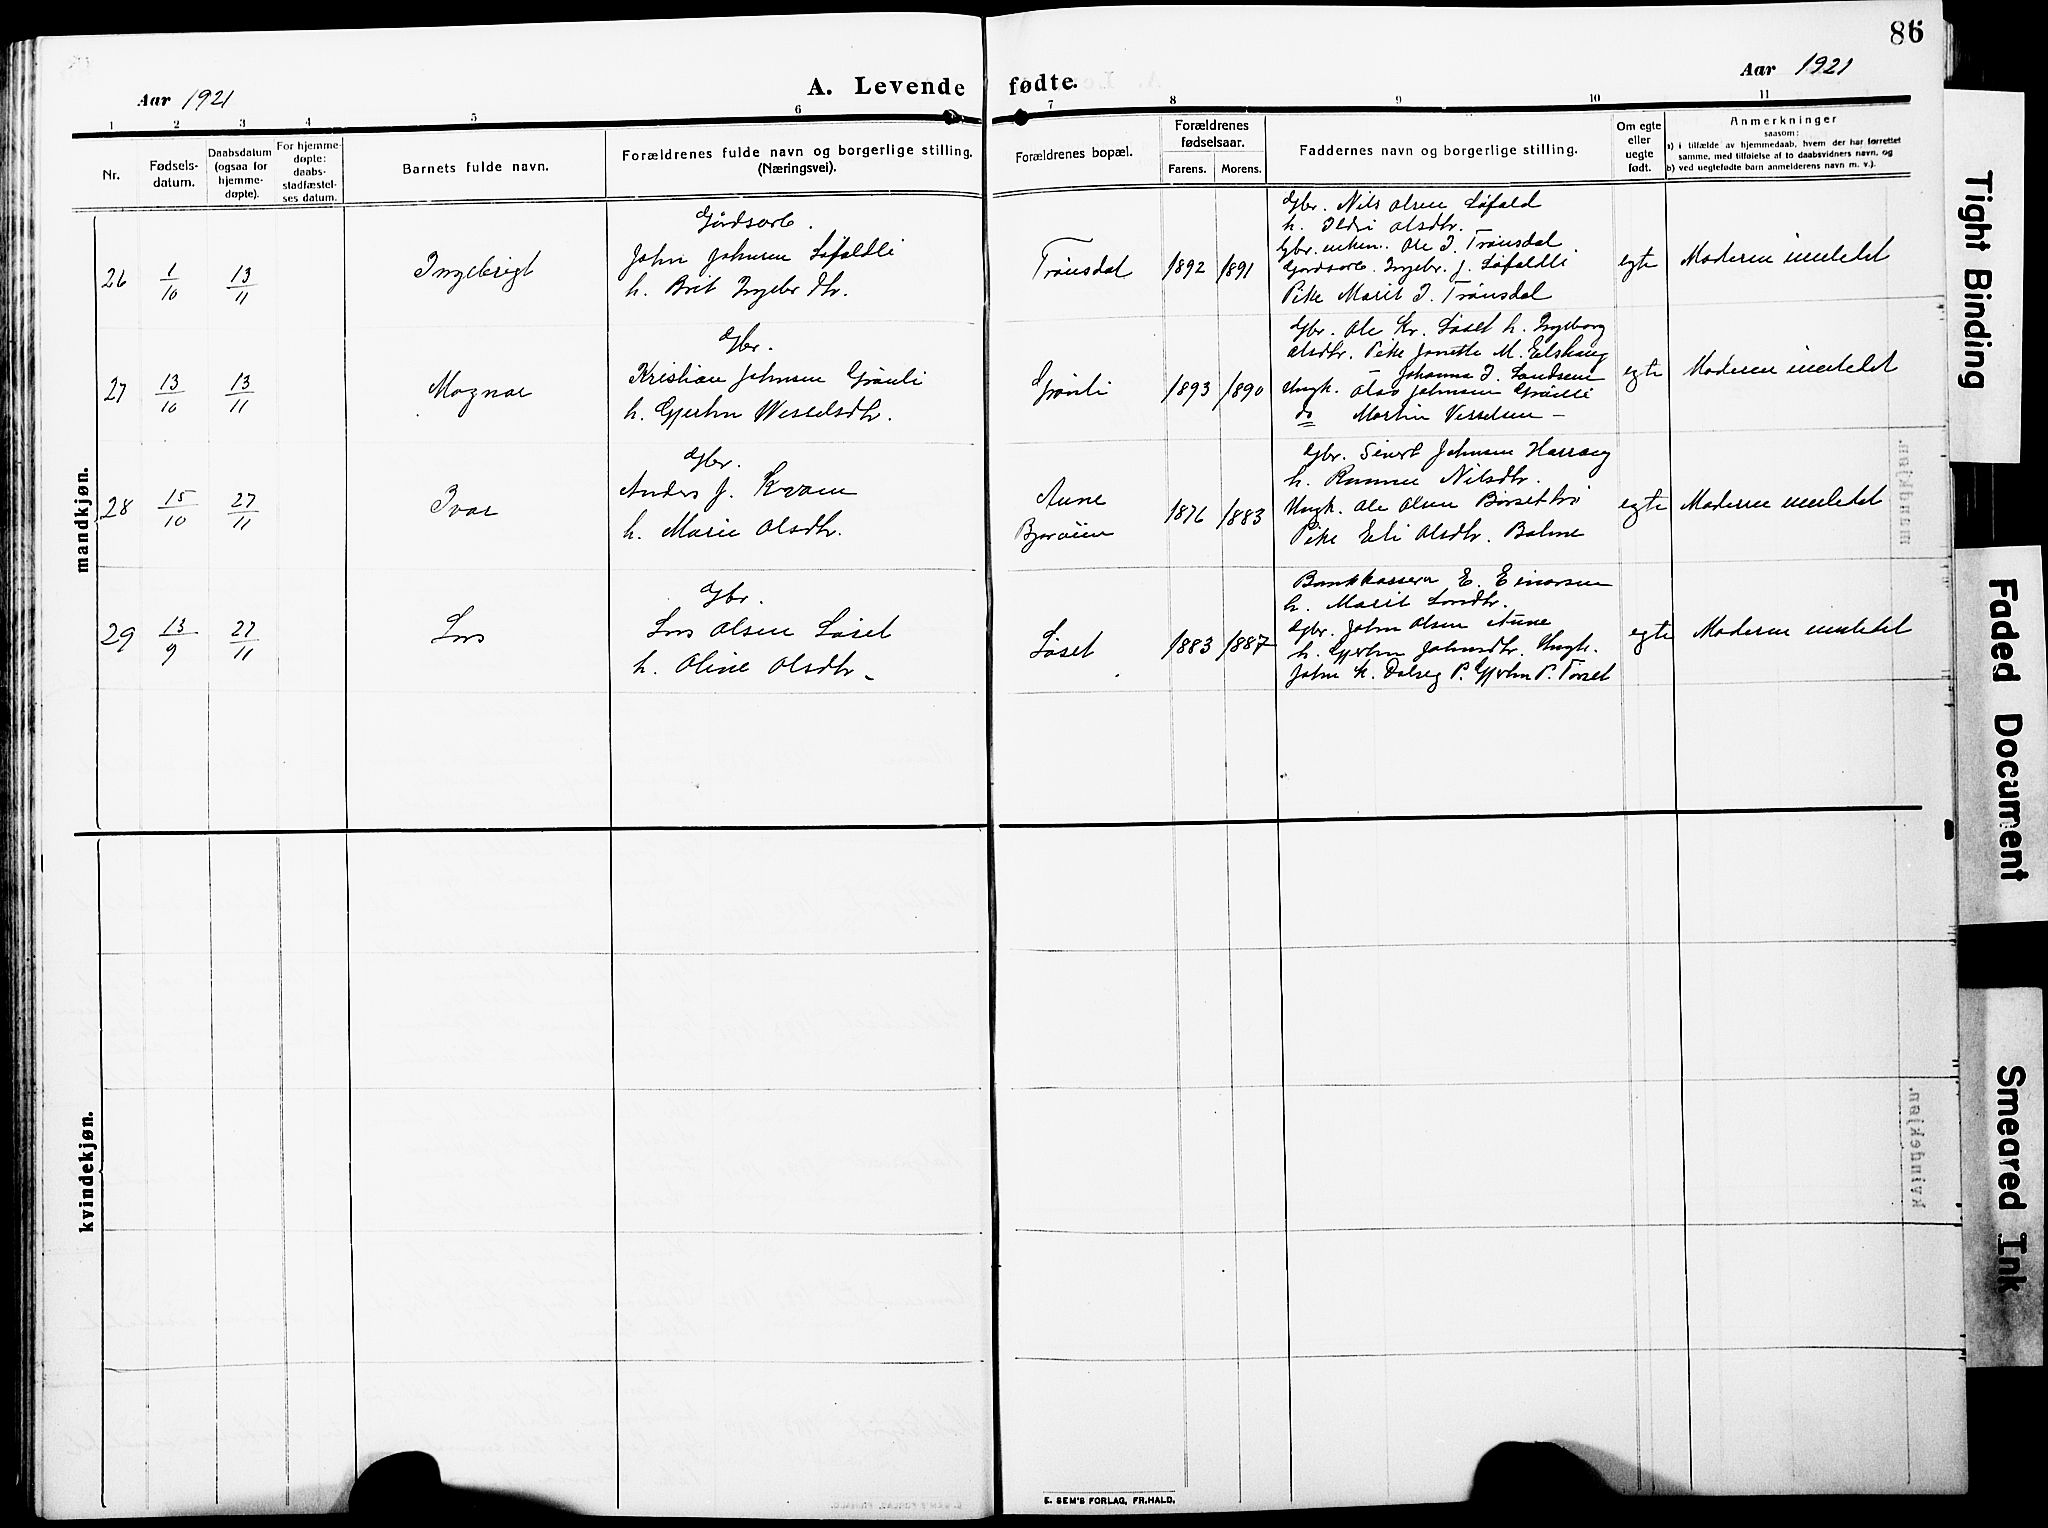 86
Aar 1921
A. Levende fødte.
Aar 1921
1 2 3 4 5 6 7 8 9 10 11
Nr.
Fødsels-
datum.
Daabsdatum
(ogsaa for
hjemme-
døpte).
For hjemme-
døpte:
daabs-
stadfæstel-
ses datum.
Barnets fulde navn.
Forældrenes fulde navn og borgerlige stilling.
(Næringsvei).
Forældrenes bopæl.
Forældrenes
fødselsaar.
Farens. Morens.
Faddernes navn og borgerlige stilling.
Om egte
eller
uegte
født.
Anmerkninger
saasom:
a) i tilfælde av hjemmedaab, hvem der har forrettet
samme, med tilføielse af to daabsvidners navn, og
b) ved uegtefødte barn anmelderens navn m. v.).
mandkjøn.
26
1/10
13/11
Ingebrigt
Gårdsarb.
John Johnsen Løfaldli
h. Brit Ingebr.dtr.
Trønsdal
1892 1891
Gbr. Nils Olsen Løfald
h. Ildri Olsdtr.
Gbr. enkem. Ole J. Trønsdal
Gårdsarb. Ingebr. J. Løfaldli
Pike Marit J. Trønsdal
egte
Moderen innledet
27
13/10
13/11
Magnar
Gbr.
Kristian Johnsen Grønli
h. Gjertru Wesselsdtr.
Grønli
1893 1890
Gbr. Ole Kr. Løset h. Ingeborg
Olsdtr. Pike Janette M. Elshaug
– Johanna J. Sandsen
Ungk. Olav Johnsen Grønli
do Martin Vesselsen –
egte
Moderen innledet
28
15/10
27/11
Ivar
Gbr.
Anders J. Kvam
h. Marie Olsdtr.
Aune
Bjørøien
1876 1883
Gbr. Sivert Johnsen Harrang
h. Nilsdtr.
Ungk. Ole Olsen Børsettrø
Pike Eli Olsdtr. Bolme
egte
Moderen innledet
29
13/9
27/11
Lars
Gbr.
Lars Olsen Løset
h. Oline Olsdtr.
Løset
1883 1887
Bankkasserer E. Einarsen
h. Marit Larsdtr.
Gbr. John Olsen Aune
h. Gjertru Johnsdtr. Ungk.
John K. Dalseg P. Gjertru P. Torset
egte
Moderen innledet
kvindekjøn.
E. SEM'S FORLAG, FR.HALD.
Tight Binding
Faded Document
Smeared Ink